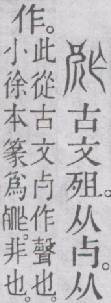 古文殂。从𣦵。从
作。此從古文𣦵作聲也。
小徐本篆爲。非也。